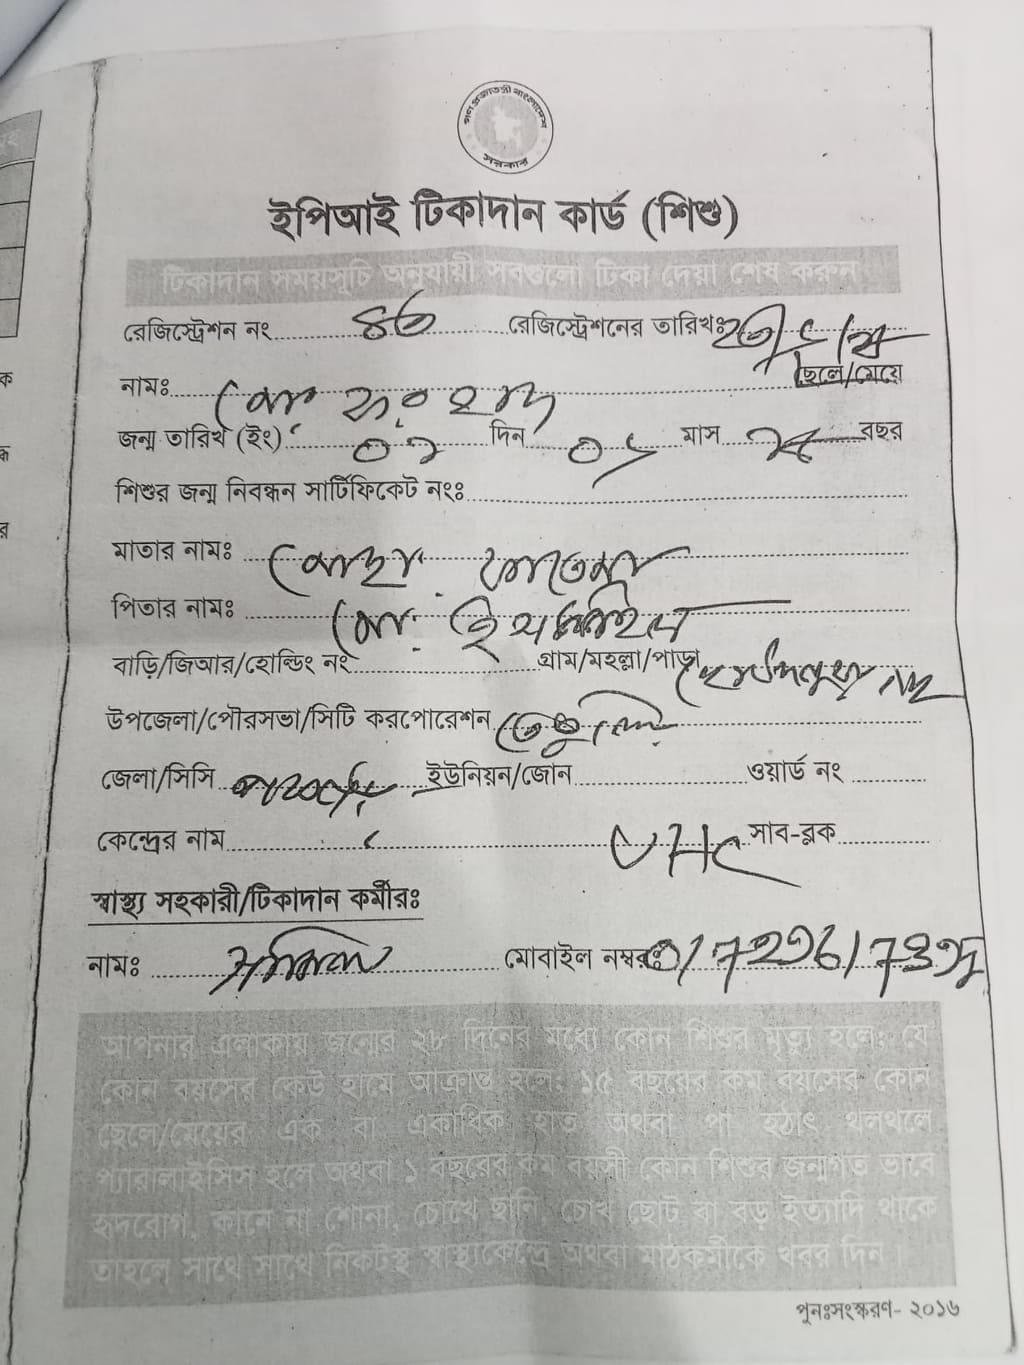 গণপ্রজাতন্ত্রী বাংলাদেশ
সরকার
ইপিআই টিকাদান কার্ড (শিশু)
টিকাদান সময়সূচি অনুযায়ী সবগুলো টিকা দেয়া শেষ করুন
রেজিস্ট্রেশন নং রেজিস্ট্রেশনের তারিখঃ
নামঃ মোঃ ছেলে/মেয়ে
জন্ম তারিখ (ইং) ০২ দিন ০১ মাস বছর
শিশুর জন্ম নিবন্ধন সার্টিফিকেট নংঃ
মাতার নামঃ মোছাঃ ফাতেমা
পিতার নামঃ মোঃ
বাড়ি/জিআর/হোল্ডিং নং গ্রাম/মহল্লা/পাড়া
উপজেলা/পৌরসভা/সিটি করপোরেশন
জেলা/সিসি ইউনিয়ন/জোন ওয়ার্ড নং
কেন্দ্রের নাম UHC সাব-ব্লক
স্বাস্থ্য সহকারী/টিকাদান কর্মীরঃ
নামঃ মোবাইল নম্বরঃ
আপনার এলাকায় জন্মের ২৮ দিনের মধ্যে কোন শিশুর মৃত্যু হলে; যে
কোন বয়সের কেউ হামে আক্রান্ত হলে; ১৫ বছরের কম বয়সের কোন
ছেলে/মেয়ের এক বা একাধিক হাত অথবা পা হঠাৎ থলথলে
প্যারালাইসিস হলে অথবা ১ বছরের কম বয়সী কোন শিশুর জন্মগত ভাবে
হৃদরোগ, কানে না শোনা, চোখে ছানি, চোখ ছোট বা বড় ইত্যাদি থাকে
তাহলে সাথে সাথে নিকটস্থ স্বাস্থ্যকেন্দ্রে অথবা মাঠকর্মীকে খবর দিন।
পুনঃসংস্করণ- ২০১৬